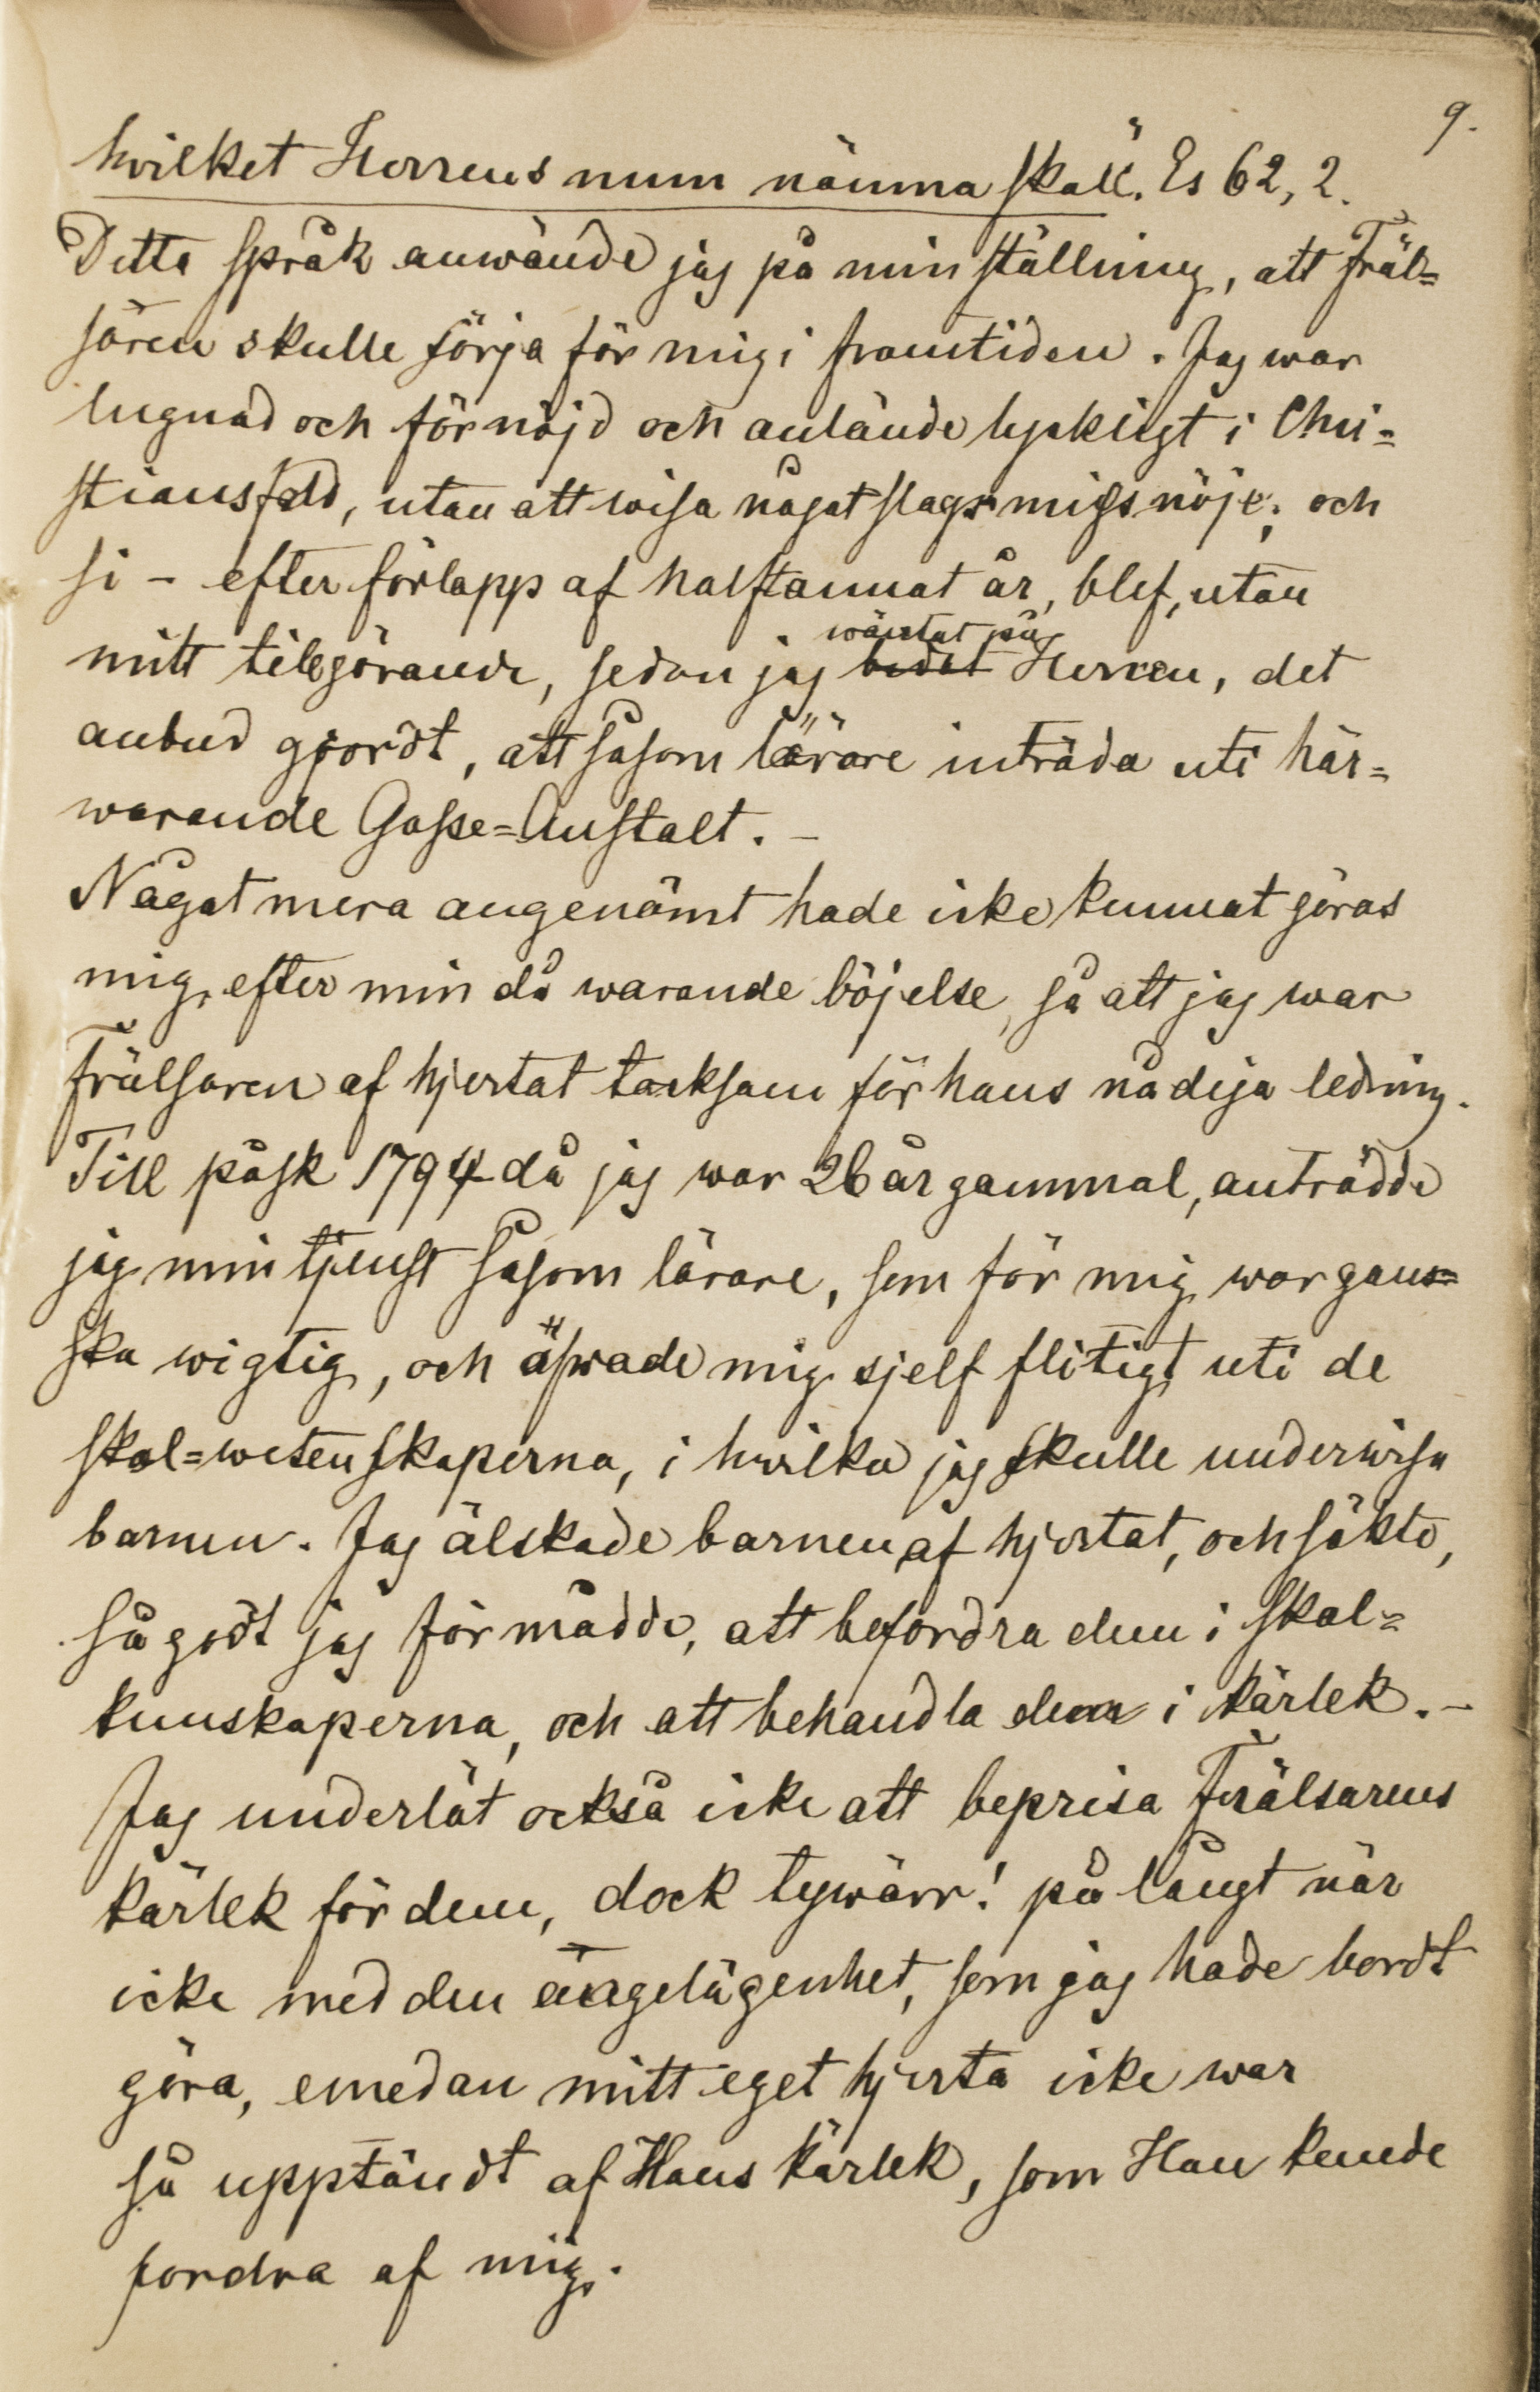 9.
hvilket Herrens mun nämna skall". Es 62, 2.
Detta språk anwände jag på min ställning, att Fräl=
saren skulle sörja för mig i framtiden. Jag war
lugnad och förnöjd och anlände lyckligt i Chri=
stiansfeld, utan att wisa något slags missnöje; och
si - efter förlopp af halftannat år, blef, utan
mitt tillgörande, sedan jag bedit wäntat på Herren, det
anbud gjordt, att såsom lärare inträda uti här=
warande Gosse=Anstalt. -
Något mera angenämt hade icke kunnat göras
mig, efter min då warande böjelse, så att jag war
Frälsaren af hjertat tacksam för hans nådiga ledning.
Till påsk 1794 då jag war 26 år gammal, anträdde
jag min tjenst såsom lärare, som för mig war gan=
ska wigtig, och öfwade mig sjelf flitigt uti de
skol=wetenskaperna, i hwilka jag skulle underwisa
barnen. Jag älskade barnen af hjertat, och sökte,
så godt jag förmådde, att befordra dem i skol=
kunskaperna, och att behandla dem i kärlek. -
Jag underlät också icke att beprisa Frälsarens
kärlek för dem, dock tywärr! på långt när
icke med den angelägenhet, som jag hade bordt
göra, emedan mitt eget hjerta icke war
så upptändt af Hans kärlek, som Han kunde
fordra af mig.